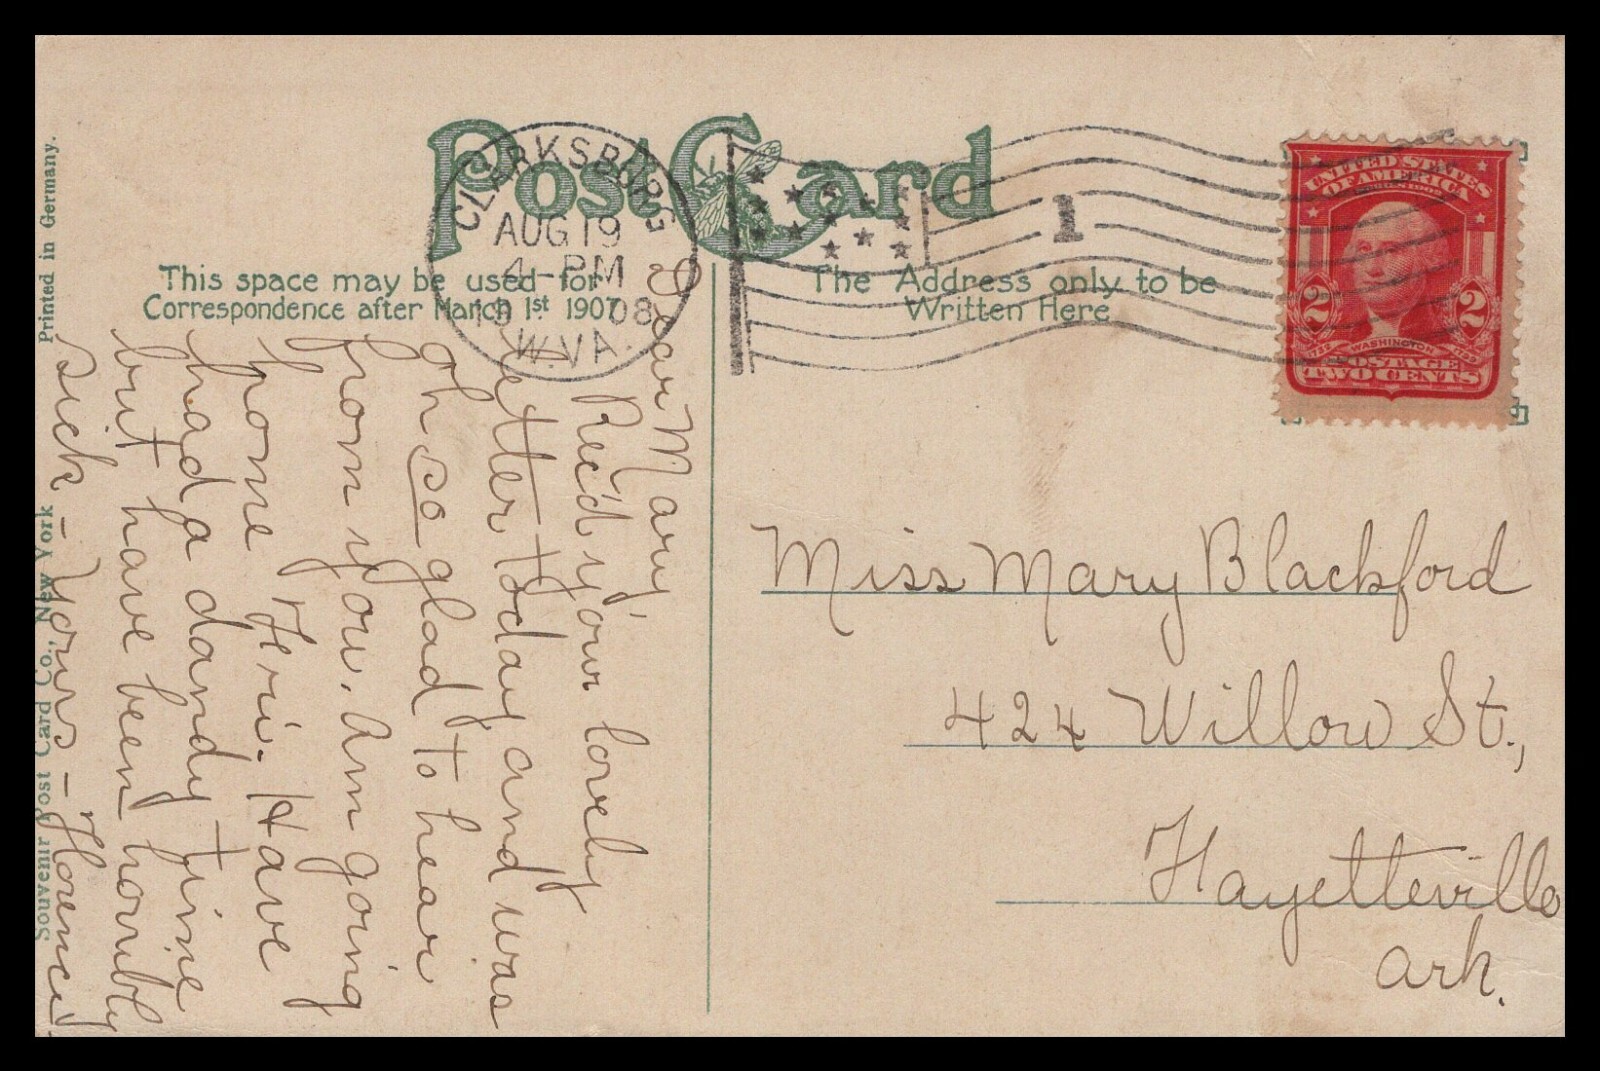 Post Card
CLARKSBURG
AUG 19
4-PM
1908
W.VA.
1
This space may be used for
Correspondence after March 1st 1907
The Address only to be
Written Here
UNITED STATES
OF AMERICA
SERIES 1902
2 2
1732 WASHINGTON 1799
POSTAGE
TWO CENTS
Dear Mary,
Rec'd your lovely
letter today and was
Oh so glad to hear
from you. Am going
home Fri. Have
had a dandy time
but have been horribly
sick - Yours - Florence
Miss Mary Blackford
424 Willow St.,
Fayetteville
Ark.
Souvenir Post Card Co., New York
Printed in Germany.